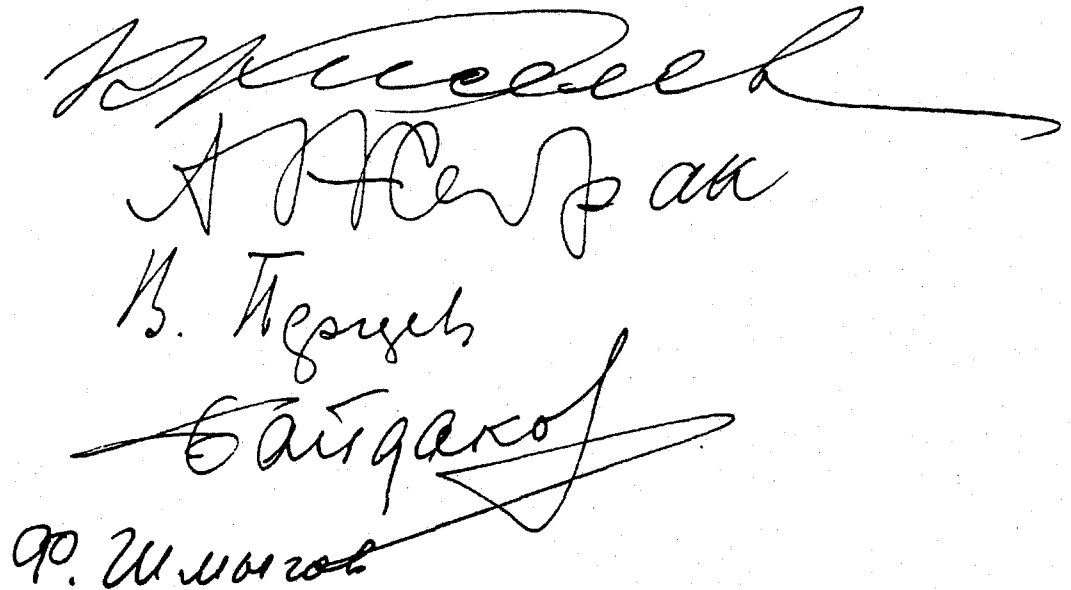 К. Киселев
А Жебрак
В. Перцев
Байдаков
Ф. Шмыгов